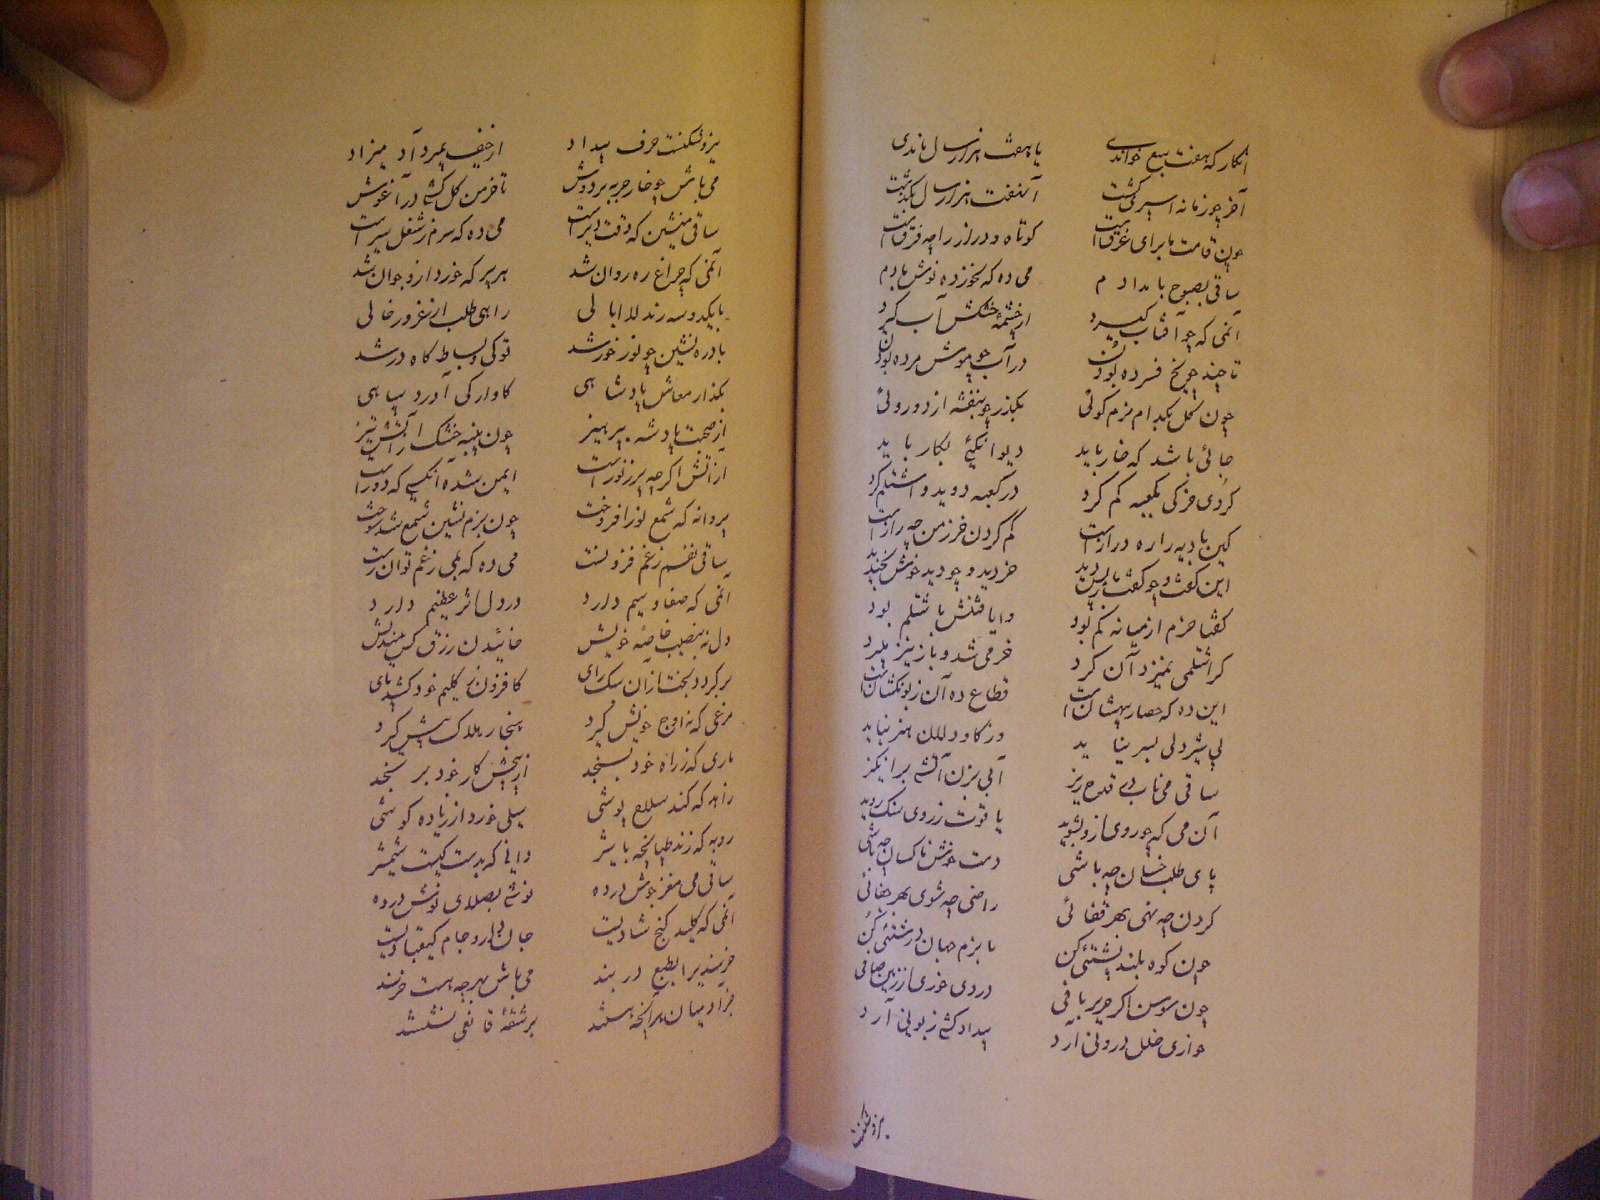 انگار که هفت سبع خواندی یا هفت هزار سال ماندی
آخر چو زمانه اسپری گشت آنهفت هزار سال بگذشت
چون قامت ما برای غرق است کوتاه و دراز را چه فرق است
ساقی بصبوح بامدادم می ده که نخورده نوش بادم
آنمی که چو آفتاب گیرد از چشمهٔ خشکش آب گیرد
تا چند چو یخ فسرده بودن در آب چو موش مرده بودن
چون گل بگذار نرم گوئی بگذر چو بنفشه از دوروئی
جائی باشد که خار باید دیوانگئی بکار باید
کردی خرکی بکعبه گم کرد در کعبه دوید و اشتلم کرد
کین بادیه را ره دراز است گم کردن خر ز من چه راز است
این گفت و چو گفت باز پس دید خر دید و چو دید خوش بخندید
گفتا خرم از میانه گم بود وایافتنش باشتلم بود
گر اشتلمی نمیزد آن کرد خر می شد و بار نیز میبرد
این ده که حصار بیهشان است اقطاع ده آن زبونکشان است
بی شیردلی بسر نیاید وز گاو دلان هنر نیاید
ساقی می ناب در قدح ریز آبی بزن آتشی برانگیز
آن می که چو روی ازو بشوید یاقوت ز روی سنگ روید
پای طلب خسان چه باشی دست خوش ناکسان چه باشی
گردن چه نهی بهر قفائی راضی چه شوی بهر جفائی
چون کوه بلند پشتئی کن با نرم جهان درشتئی کن
چون سوسن اگر حریر بافی دردی خوری از زمین صافی
خواری خلل درونی آرد بیدادکشی زبونی آرد
نیرو شکنست حیف و بیداد از حیف بمیرد آدمیزاد
می باش چو خار حربه بر دوش تا خرمن گل کشی در آغوش
ساقی منشین که وقت دیر است می ده که سرم ز شغل سیر است
آنمی که چراغ رهروان شد هر پیر که خورد ازو جوان شد
با یک دو سه رند لاابالی راهی طلب از غرور خالی
با ذره نشین چو نور خورشید تو کی و بساط گاه جمشید
بگذار معاش پادشاهی کاوارگی آورد سپاهی
از صحبت پادشه بپرهیز چون پنبهٔ خشک از آتش تیز
از آتش اگر چه پر ز نور است ایمن شده آنکسی که دور است
پروانه که شمع نور افروخت چون بزم نشین شمع شد سوخت
ساقی نفسم ز غم فروبست می ده که بمی ز غم توان رست
آنمی که صفای سیم دارد در دل اثر عظیم دارد
دل نه بنصیب خاصهٔ خویش خائیدن رزق کس میندیش
برگردد بخت از آن سبک رای کافزون ز گلیم خود کشد پای
مرغی که نه اوج خویش گیرد هنجار هلاک پیش گیرد
ماری که نه راه خود بسنجد از پیچش کار خود برنجد
زاهد که کند سلاح پوشی سیلی خورد از زیاده کوشی
روبه که زند طپانچه با شیر دانی که بدست کیست شمشیر
ساقی می مغز جوش در ده نوشی بصلای نوش در ده
آنمی که کلید گنج شادیست جان داروی جام کیقبادیست
خرسندی را بطبع در بند می باش بهر چه هست خرسند
جز آدمیان هر آنچه هستند بر شقهٔ قانعی نشستند